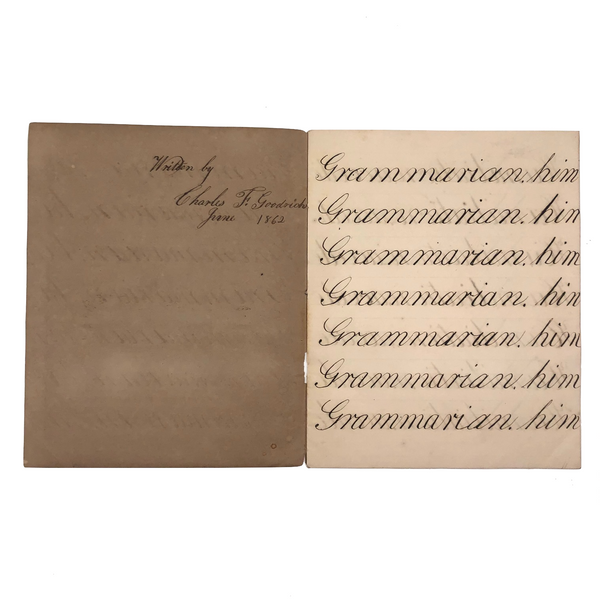 Written by
Charles F. Goodrich
June 1862
Grammarian. him
Grammarian. him
Grammarian. him
Grammarian. him
Grammarian. him
Grammarian. him
Grammarian. him